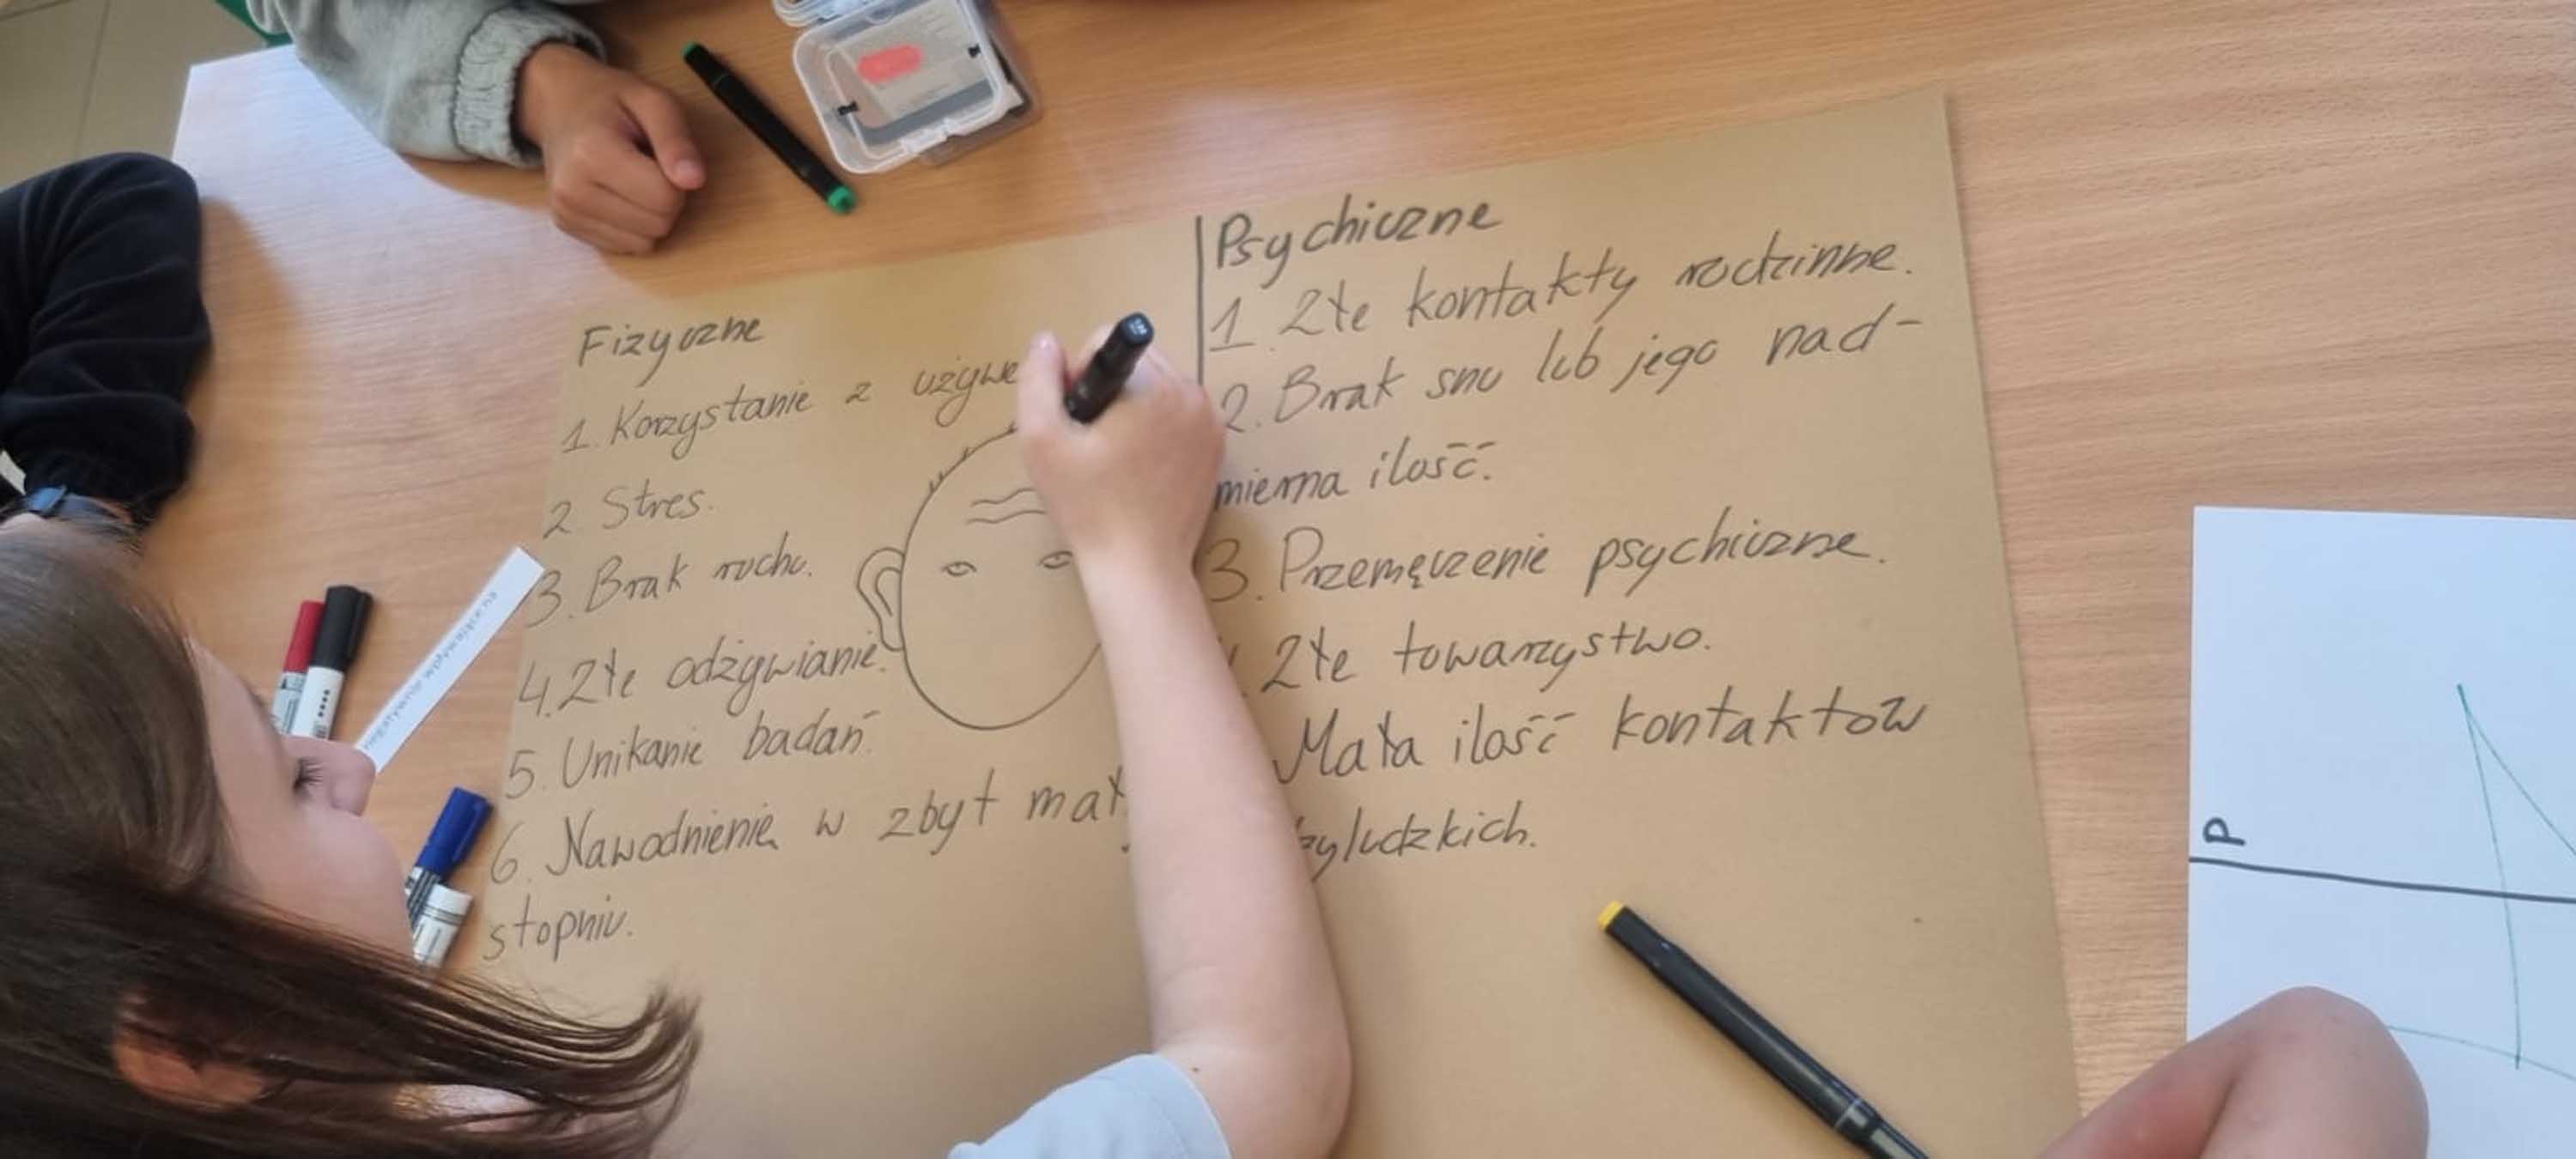 Fizyczne
1. Korzystanie z używe
2. Stres.
3. Brak ruchu.
4. Złe odżywianie.
5. Unikanie badań.
6. Nawodnienie w zbyt mał
stopniu.
Psychiczne
1. Złe kontakty rodzinne.
2. Brak snu lub jego nad-
mierna ilość.
3. Przemęczenie psychiczne.
Złe towarzystwo.
Mała ilość kontaktów
zyludzkich.
negatywnie wpływające na
P